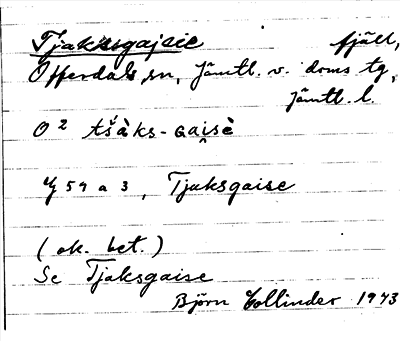 Tjaksgajsie fjäll,
Offerdals sn, Jämtl. v. doms. tg,
Jämtl. l.
O 2 tšàks-gaisè
4/59 a 3, Tjaksgaise
(ok. bet.)
Se Tjaksgaise
Björn Collinder 1943